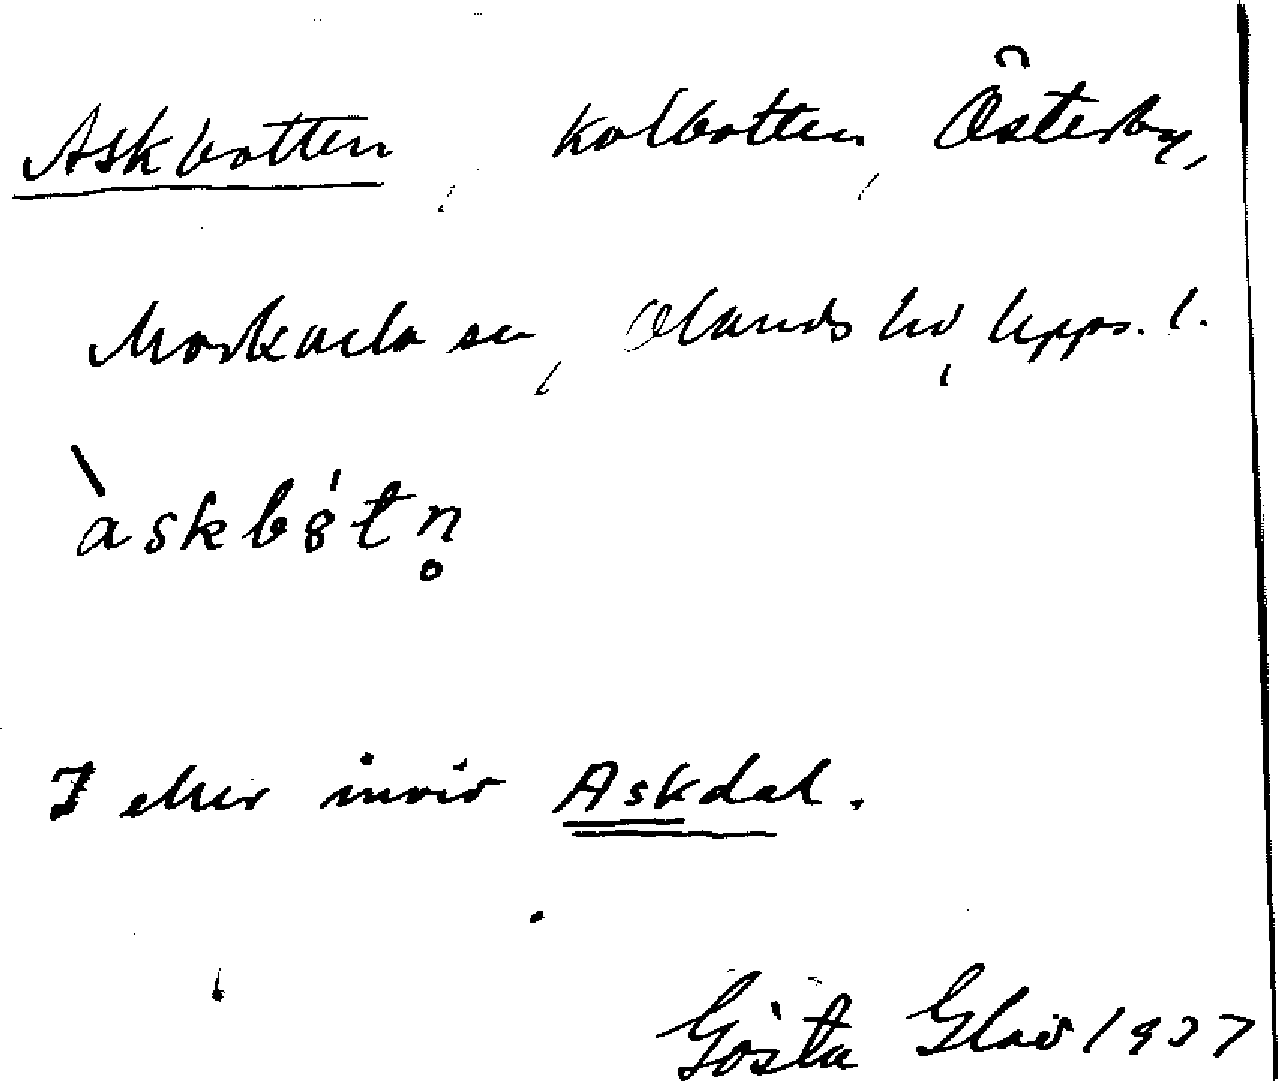 Askbotten, kolbotten, Österby,
Morkarla sn, Olands hd, Upps. l.
àskbo̍tn̥
I eller invid Askdal.
Gösta 1937